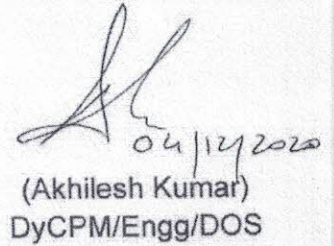 04/12/2020
(Akhilesh Kumar)
DyCPM/Engg/DOS